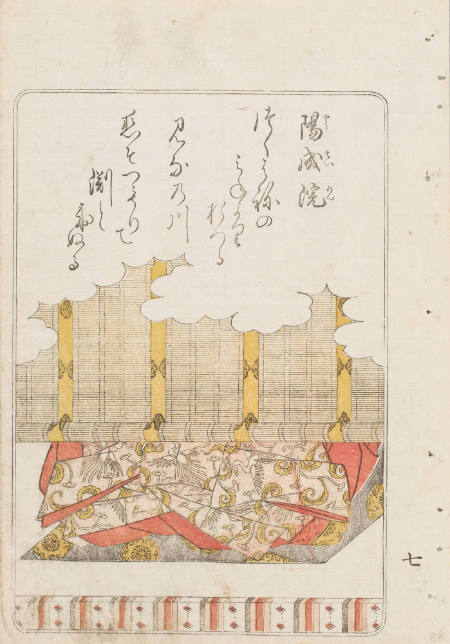 陽成院
つくはねの
みねより
おつる
みなの川
恋そつもりて
淵と
なりぬる
七